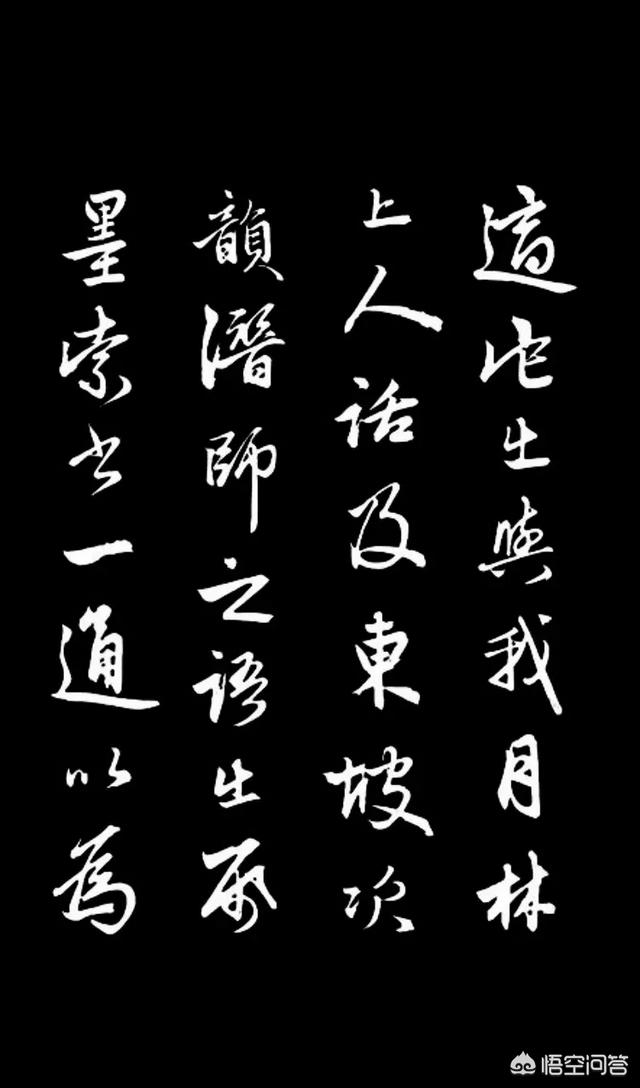 適生與我月林
上人話及東坡次
韻潛師之語生
墨索書一通以為
悟空问答